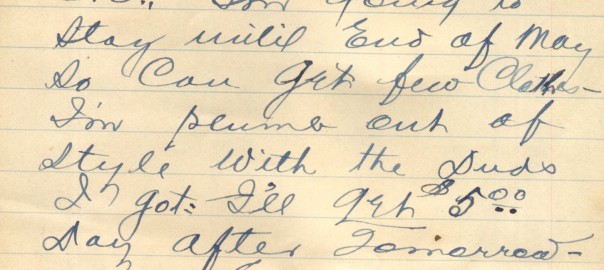 I'm going to
Stay until End of May
So Can get few Clothes-
I'm plumb out of
Style with the Duds
I got. I'll get $5.00
Day after Tomorrow-